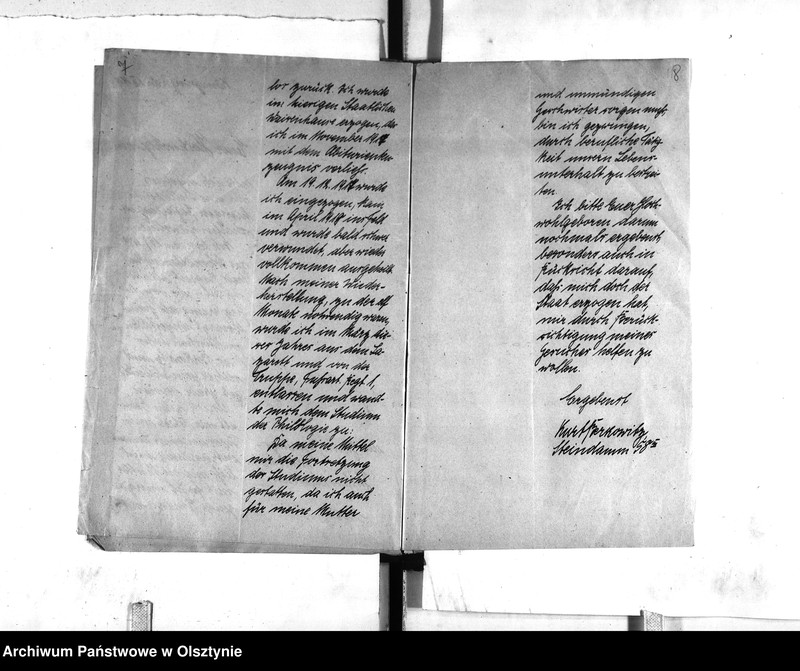 7
los zurück. Ich wurde
im hiesigen Staatlichen
Waisenhause erzogen, das
ich im November 1917
mit dem Abiturienten-
zeugnis verließ.
Am 14. 12. 1917 wurde
ich eingezogen, kam
im April 1918 ins Feld
und wurde bald schwer
verwundet, aber wieder
vollkommen ausgeheilt.
Nach meiner Wieder-
herstellung, zu der elf
Monate notwendig waren,
wurde ich im März die-
ses Jahres aus dem La-
zarett und von der
Truppe, Fußart. Regt. 1,
entlassen und wand-
te mich dem Studium
der Philologie zu.
Da meine Mittel
mir die Fortsetzung
des Studiums nicht
gestatten, da ich auch
für meine Mutter
8
und unmündigen
Geschwister sorgen muß,
bin ich gezwungen,
durch berufliche Tätig-
keit unsern Lebens-
unterhalt zu bestrei-
ten.
Ich bitte Euer Hoch-
wohlgeboren darum
nochmals ergebenst
besonders auch in
Rücksicht darauf,
daß mich doch der
Staat erzogen hat,
mir durch Berück-
sichtigung meines
Gesuches helfen zu
wollen.
Ergebenst
Kurt Perkowitz
Steindamm
Archiwum Państwowe w Olsztynie